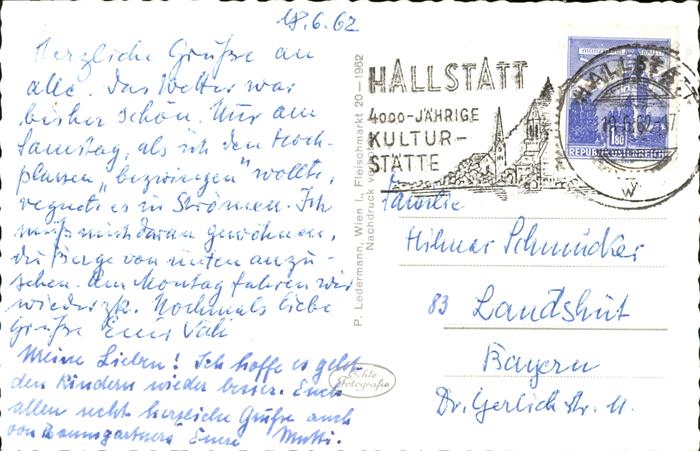 18.6.62
Herzliche Grüße an
alle. Das Wetter war
bisher schön. Nur am
Samstag, als ich den Hoch-
plassen "bezwingen" wollte,
regnete es in Strömen. Ich
muß mich daran gewöhnen,
die Berge von unten anzu-
sehen. Am Montag fahren wir
wieder zk. Nochmals liebe
Grüße Euer Vati
Meine Lieben! Ich hoffe es geht
den Kindern wieder besser. Euch
allen recht herzliche Grüße auch
von Baumgartners Eure Mutti.
P. Ledermann, Wien I., Fleischmarkt 20 — 1962
Nachdruck
Echte
Fotografie
HALLSTATT
4000-JÄHRIGE
KULTUR-
STÄTTE
HALLSTA
62-17
1.80
REPUBLIK ÖSTERREICH
Familie
Hilmar Schmücker
83 Landshut
Bayern
Dr. Gerlich Str. 11